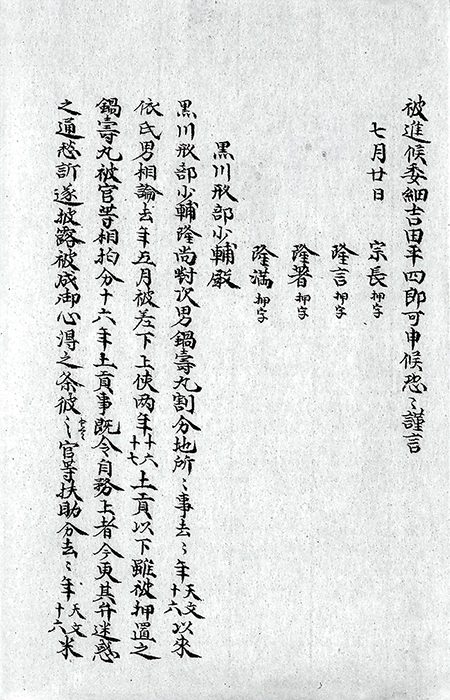 被進候委細吉田平四郎可申候恐〻謹言
七月廿日 宗長押字
隆言押字
隆著押字
隆満押字
黒川刑部少輔殿
黒川刑部少輔隆尚對次男鍋壽丸割分地所〻事去〻年天文十六以来
依氏男相論去年五月被差下上使两年十六十七土貢以下雖被押置之
鍋壽丸被官等相拘分十六年土貢事既令自務上者今更其弁迷惑
之通愁訴遂披露被成御心得之条彼〻官等扶助分去〻年天文十六米